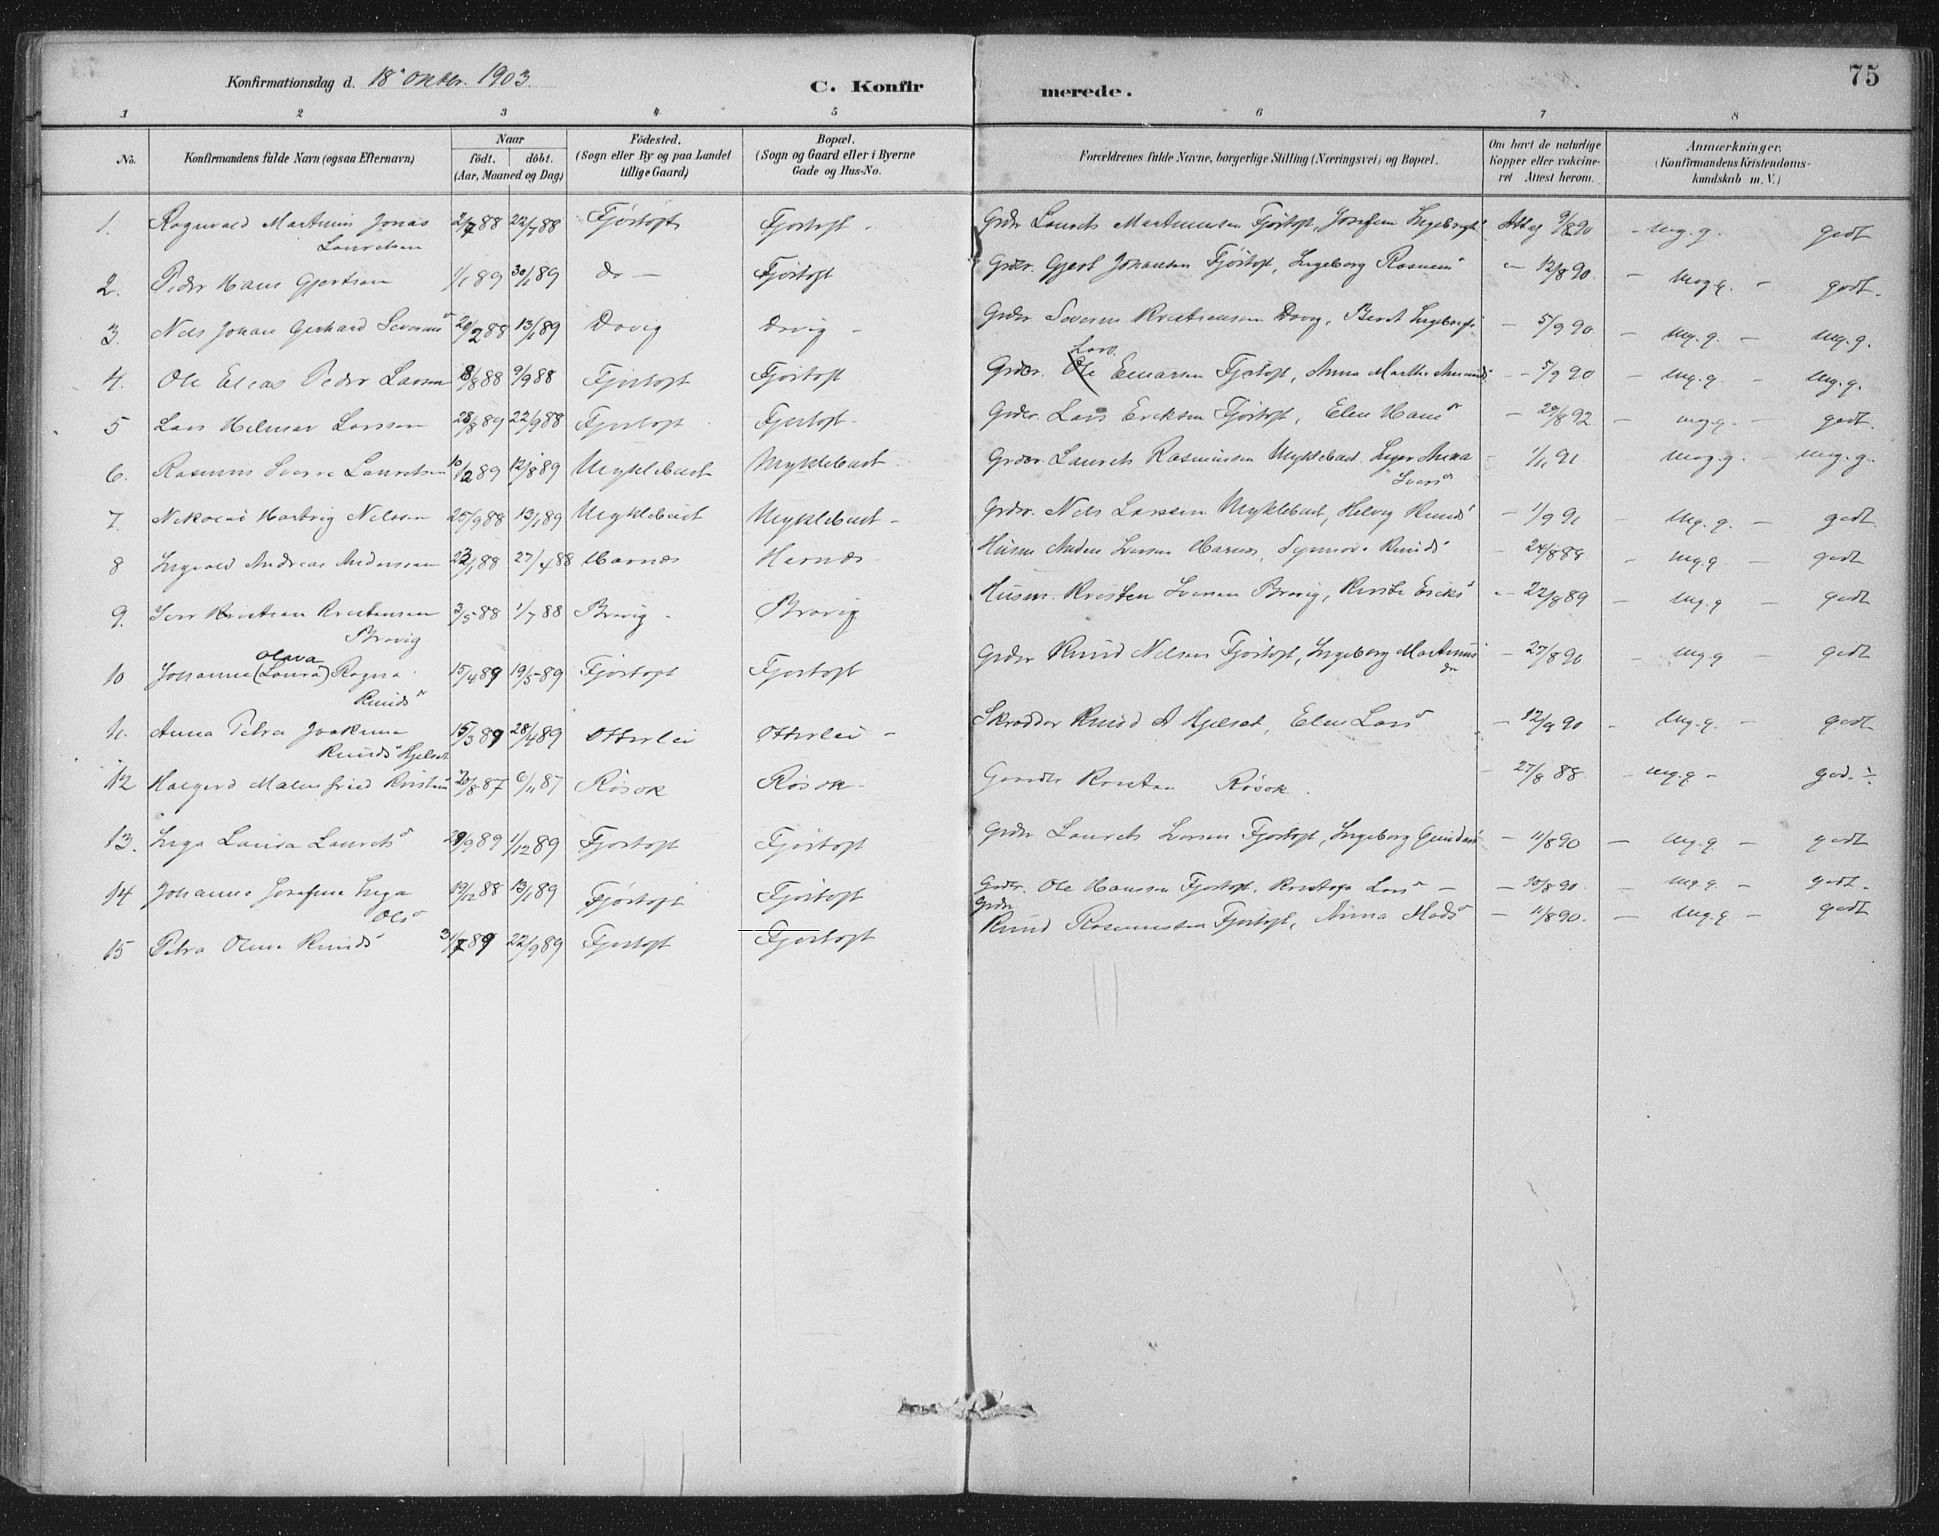 75
Konfirmationsdag d. 18 Oktbr. 1903.
C. Konfirmerede.
1 2 3 4 5 6 7 8
No.
Konfirmandens fulde Navn (ogsaa Efternavn)
Naar
født. døbt.
(Aar, Maaned og Dag)
Födested.
(Sogn eller By og paa Landet
tillige Gaard)
Bopæl.
(Sogn og Gaard eller i Byerne
Gade og Hus-No.
Forældrenes fulde Navne, borgerlige Stilling (Næringsvei) og Bopæl.
Om havt de naturlige
Kopper eller vakcine-
ret Attest herom.
Anmærkninger.
(Konfirmandens Kristendoms-
kundskab m. V.)
1. Ragnvald Martinus Jonas 2/7 88 22/7 88 Fjørtoft Fjørtoft Grdr. Laurits Martinusen Fjørtoft, Josefine Ingebrigt 9/8 90 mg. g. godt
Lauritsen
2. Peder Hans Gjertsen 1/1 89 30/1 89 do — Fjørtoft Grdr. Gjert Johansen Fjørtoft, Ingeborg Rasmus 12/8 90 — mg. g. — godt.
3. Nils Johan Gerhard Severins 20/2 88 13/1 89 Dravig Dravig Grdr. Severin Kristiansen Dravig, Berit Ingebrigts — 5/9 90 — mg. g. — mg. g.
Lars
4. Ole Elias Peder Larsen 8/8 88 9/9 88 Fjørtoft Fjørtoft Grdr. Ole Einarsen Fjørtoft, Anna Marthe Amunds — 5/9 90 — mg. g. — mg. g.
5 Lars Hilmar Larssen 28/8 89 22/9 88 Fjørtoft Fjørtoft Grdr. Lars Eriksen Fjørtoft, Elen Hans — 29/8 92 — mg. g. — godt.
6. Rasmus Sverre Lauritsen 10/2 89 12/8 89 Myklebust Myklebust Grdr. Laurits Rasmussen Myklebust, Inger Anna — 1/1 91 mg. g. — mg. g.
Ivers
7. Nikolai Hartvig Nilsen 25/9 88 13/1 89 Myklebust Myklebust Grdr. Nils Larssen Myklebust, Helvig Knuds — 1/9 91 — mg. g. — godt
8 Ingvald Andreas Andersen 23/1 88 27/4 88 Harnes Harnes Husm. Anders Iversen Harnes, Synnøve Knuds — 24/8 88 — mg. g. — godt
9. Iver Kristian Kristensen 3/5 88 1/7 88 Brovig Brovig Husm. Kristen Iversen Brovig, Kirsti Eriks — 22/8 89 — mg. g — godt
Brovig
Oliva
10 Johanne (Laura) Ragna 15/4 89 19/5 89 Fjørtoft Fjørtoft Grdr. Knud Nilsen Fjørtoft, Ingeborg Martinus — 27/8 90 — mg. g — godt
Knuds dr
11. Anna Petra Joakima 15/3 89 28/4 89 Otterlei Otterlei Skrædder Knud A Hjelset, Elen Lars — 12/9 90 — mg. g. — godt
Knuds Hjelset
12 Halgerd Malenfried Kristens 20/8 87 6/11 87 Røsok Røsok Gaardbr Kristen Røsok. 27/8 88 — mg. g — god. ÷
13. Inga Lovisa Laurits 29/9 89 1/12 89 Fjørtoft Fjørtoft Grdr Laurits Iversen Fjørtoft, Ingeborg — 11/8 90 — mg. g — godt
14 Johanne Josefine Inga 19/12 88 13/1 89 Fjørtoft Fjørtoft Grdr. Ole Hanssen Fjørtoft, Lars — 30/8 90. — mg. g. — godt.
Ols
15 Petra Oline Knuds 31/7 89 22/9 89 Fjørtoft Fjørtoft Grdr Knud Rasmussen Fjørtoft, Anna Mads — 11/8 90. — mg. g — godt